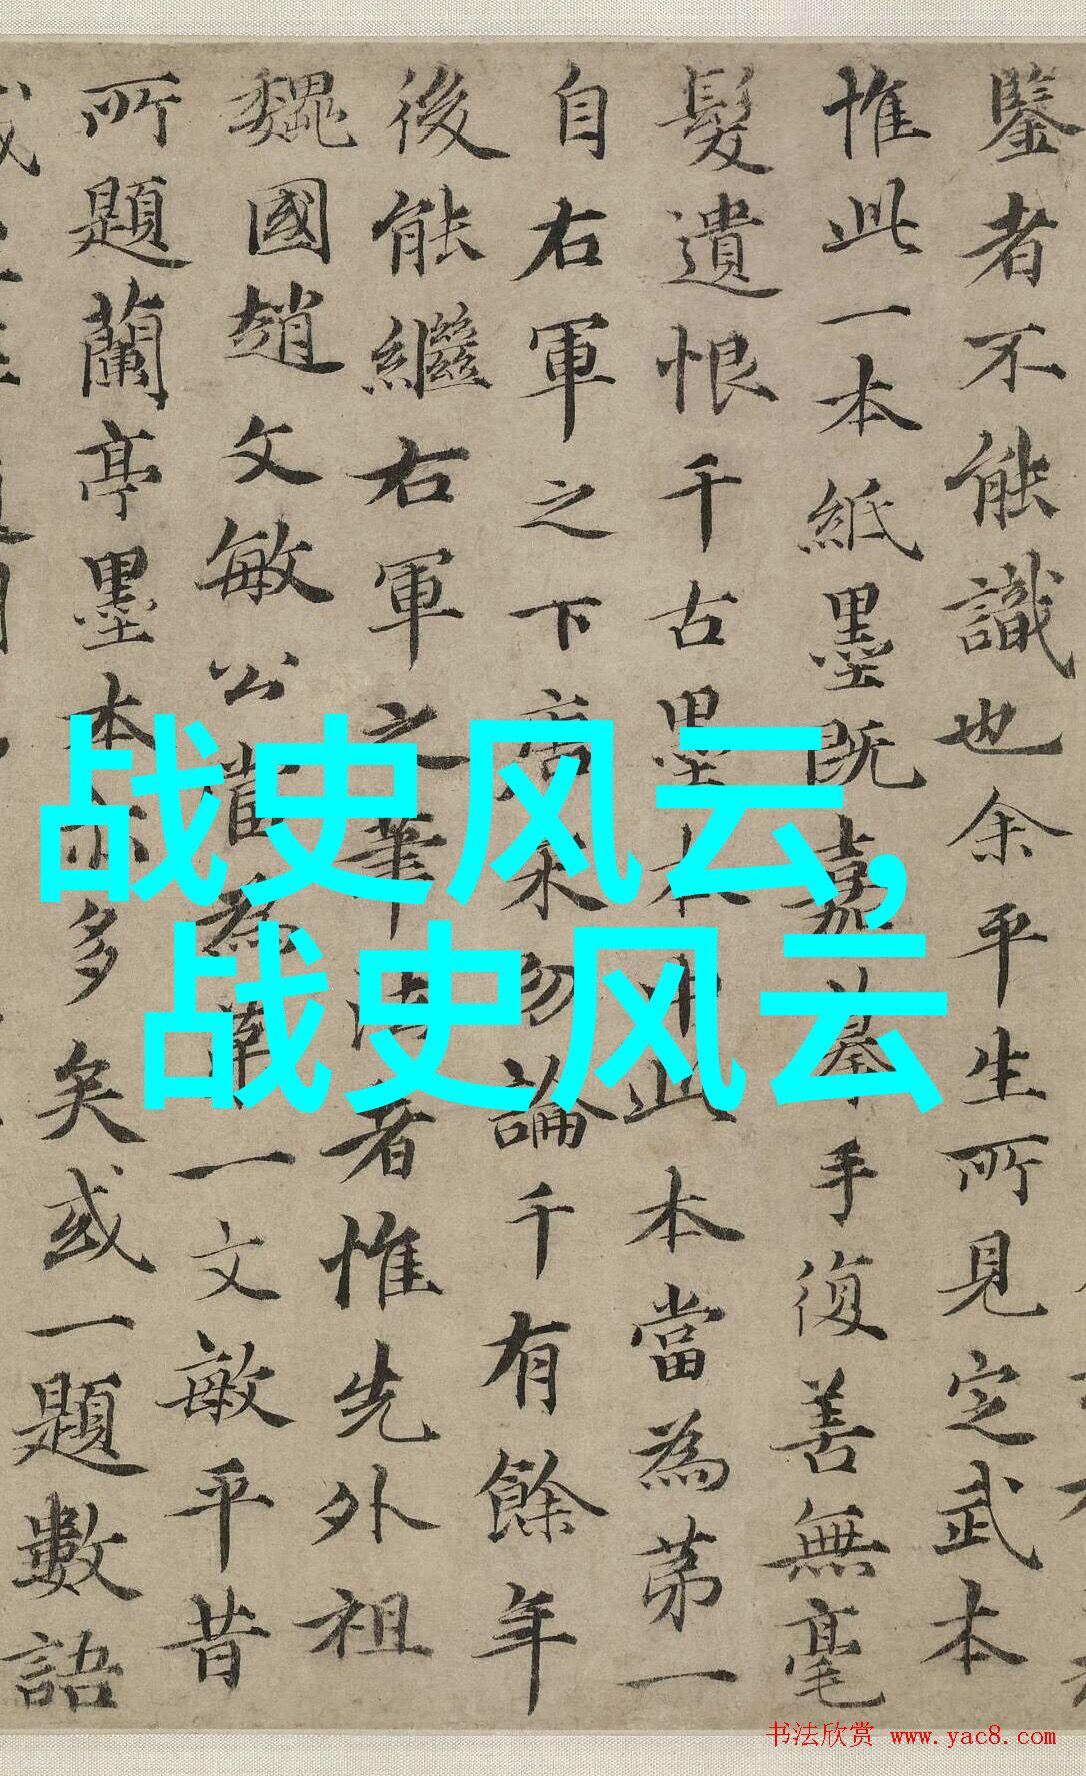 鑒者不能識也余平生所見定武本
惟此一本紙墨既嘉摹手復善無毫
髮遺恨千古墨本中此本當為苐一
自右軍之下唐宋勿論千有餘年
後能繼右軍之筆法者惟先外祖
魏國趙文敏公為一文敏平昔
所題蘭亭墨本亦多矣或一題數語
战史风云,
战史风云
书法欣赏 www.yac8.com